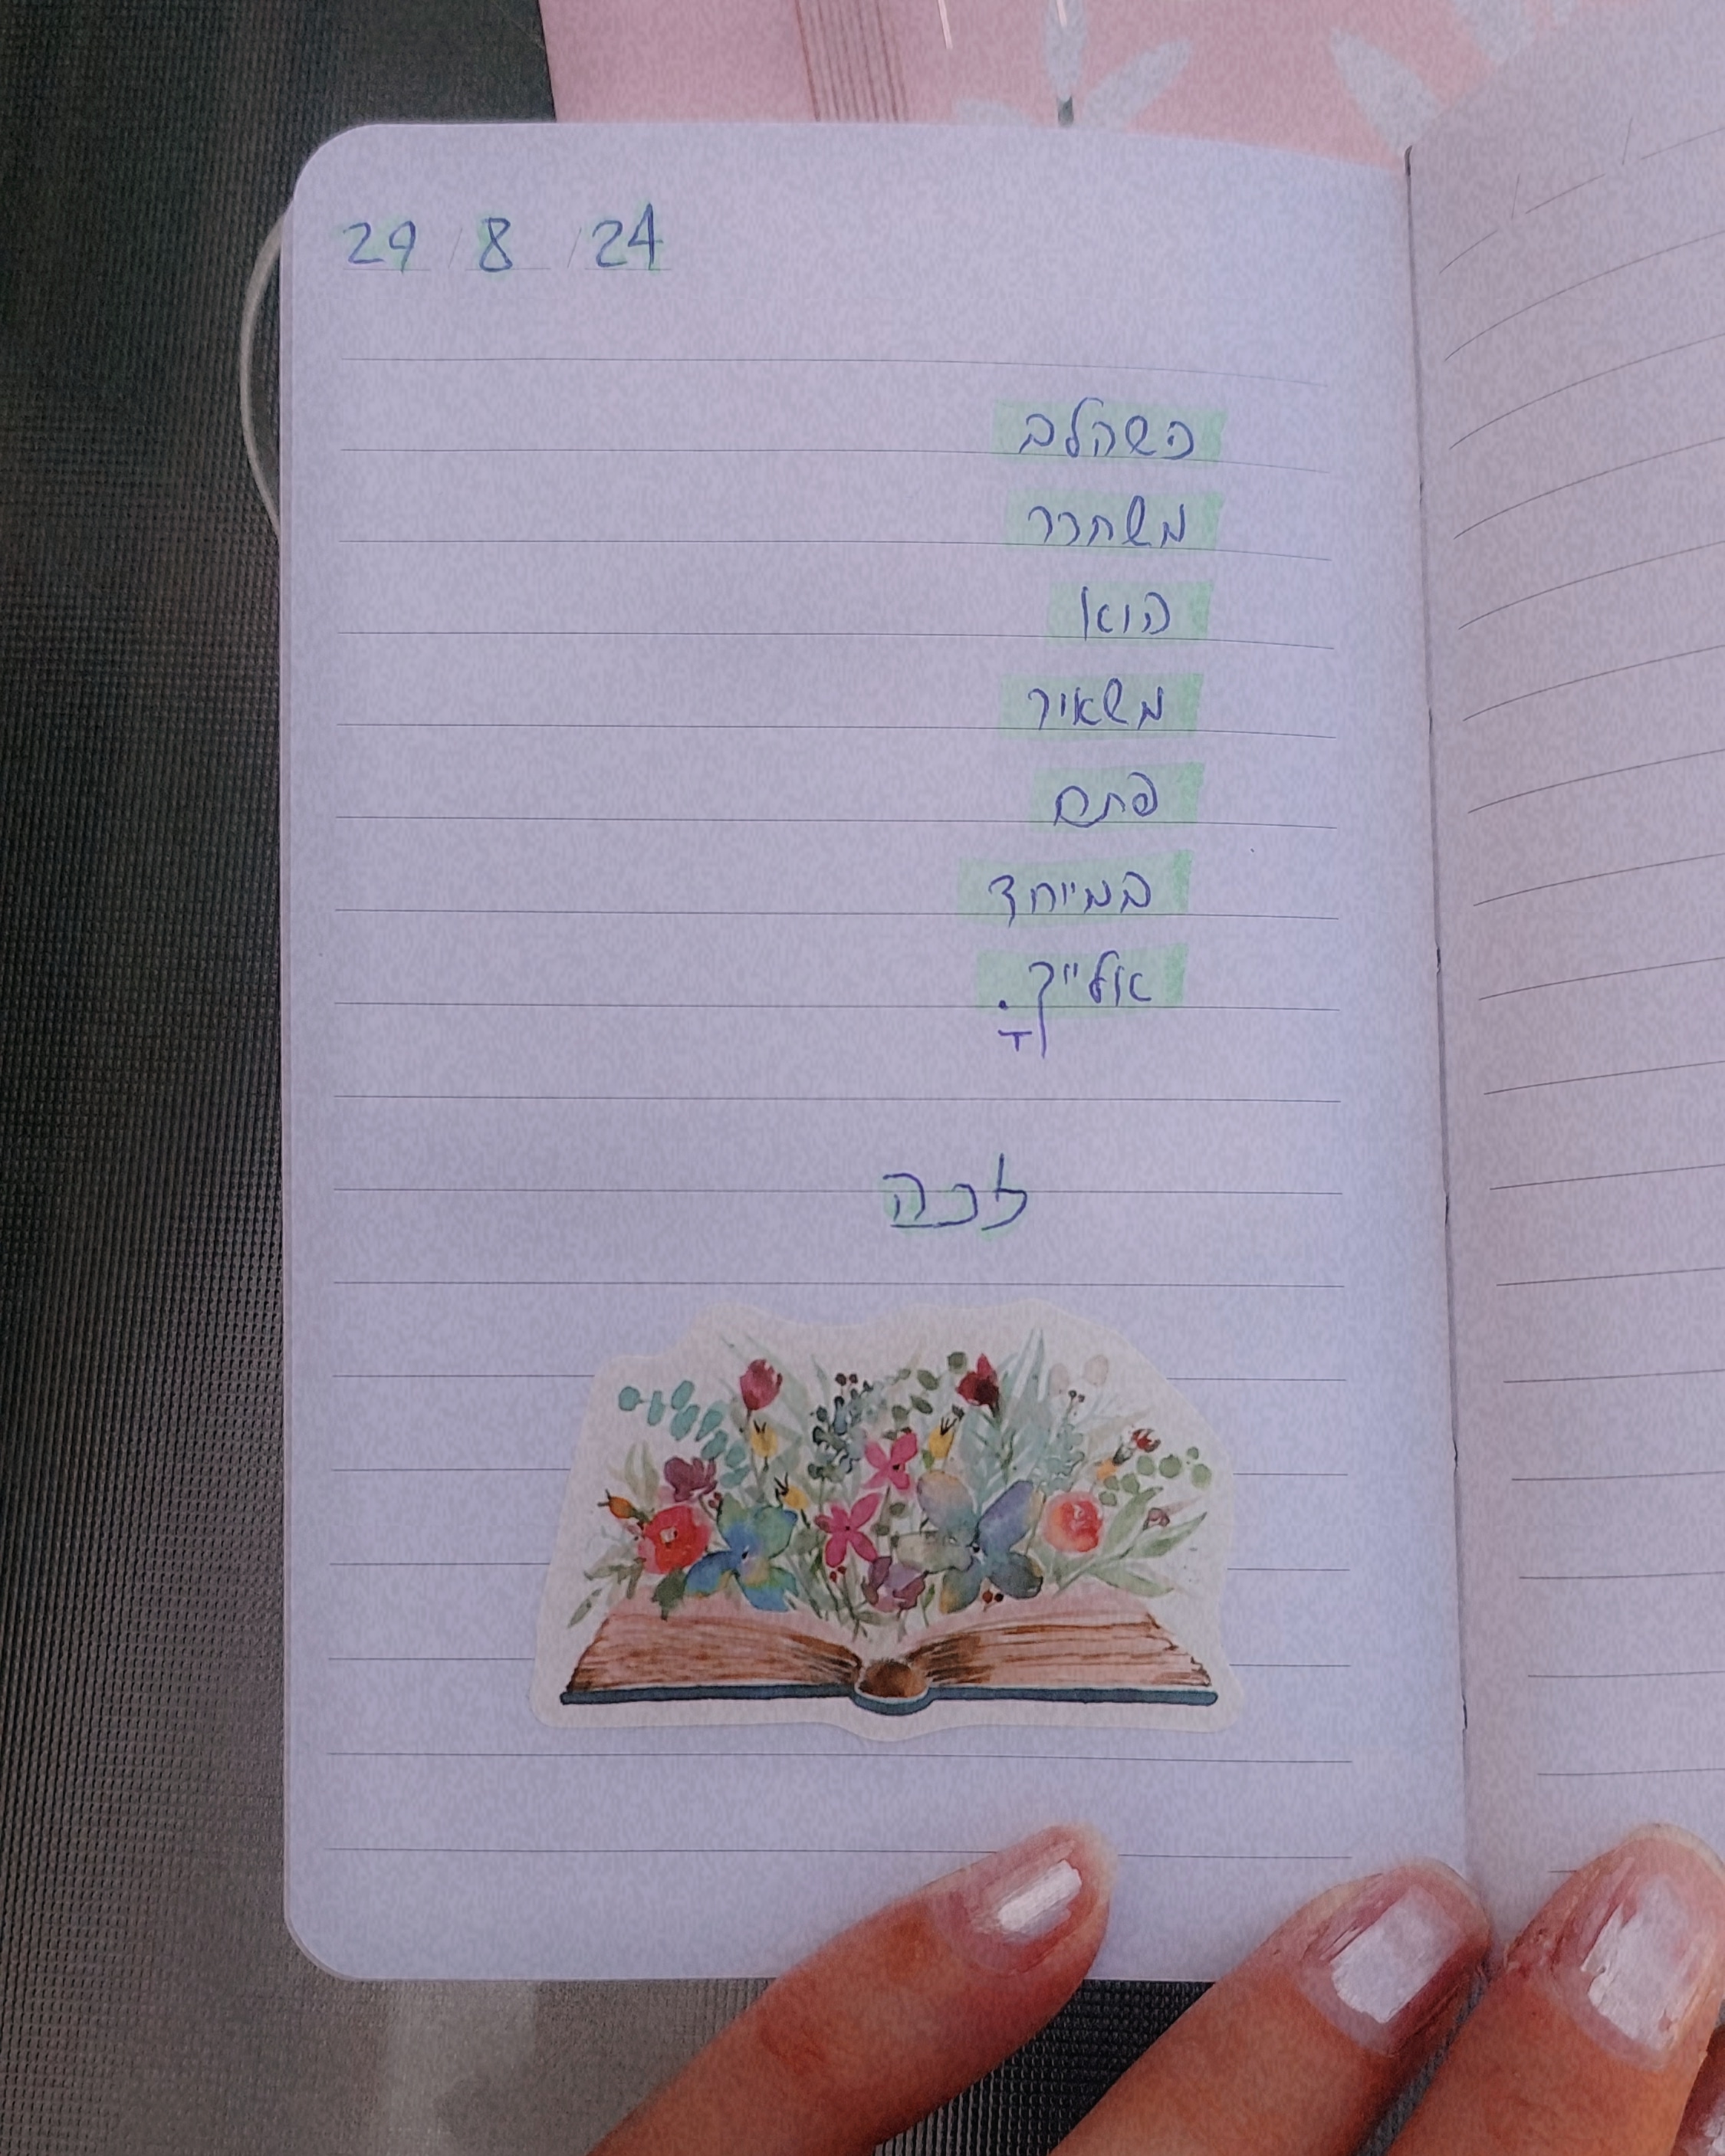 29/8/24
כשהלב
משחרר
הוא
משאיר
פתח
במיוחד
אלייךָ.
זכה